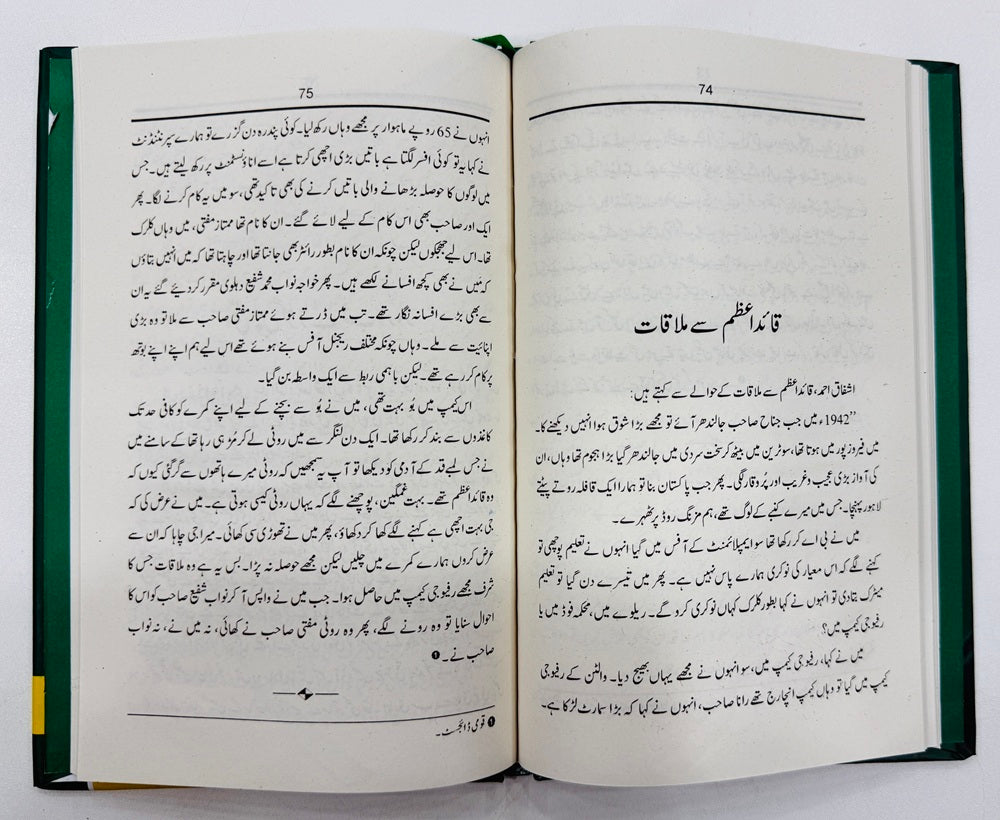 74
قائداعظم سے ملاقات
اشفاق احمد، قائداعظم سے ملاقات کے حوالے سے کہتے ہیں:
”1942ء میں جب جناح صاحب جالندھر آئے تو مجھے بڑا شوق ہوا انہیں دیکھنے کا۔
میں فیروز پور میں ہوتا تھا، سو ٹرین میں بیٹھ کر سخت سردی میں جالندھر گیا بڑا ہجوم تھا وہاں، ان
کی آواز بڑی عجیب وغریب اور پُروقار لگی۔ پھر جب پاکستان بنا تو ہمارا ایک قافلہ روتے پٹتے
لاہور پہنچا۔ جس میں میرے کنبے کے لوگ تھے، ہم مزنگ روڈ پر ٹھہرے۔
میں نے بی اے کر رکھا تھا سو ایمپلائمنٹ کے آفس میں گیا انہوں نے تعلیم پوچھی تو
کہنے لگے کہ اس معیار کی نوکری ہمارے پاس نہیں ہے۔ پھر میں تیسرے دن گیا تو تعلیم
میٹرک بتادی تو انہوں نے کہا بطور کلرک کہاں نوکری کرو گے۔ ریلوے میں، محکمہ فوڈ میں یا
رفیوجی کیمپ میں؟
میں نے کہا، رفیوجی کیمپ میں، سو انہوں نے مجھے یہاں بھیج دیا۔ والٹن کے رفیوجی
کیمپ میں گیا تو وہاں کیمپ انچارج تھے رانا صاحب، انہوں نے کہا کہ بڑا سمارٹ لڑکا ہے۔
75
انہوں نے 65 روپے ماہوار پر مجھے وہاں رکھ لیا۔ کوئی پندرہ دن گزرے تو ہمارے سپرنٹنڈنٹ
نے کہا یہ تو کوئی افسر لگتا ہے باتیں بڑی اچھی کرتا ہے اسے اناؤنسمنٹ پر رکھ لیتے ہیں۔ جس
میں لوگوں کا حوصلہ بڑھانے والی باتیں کرنے کی بھی تاکید تھی، سو میں یہ کام کرنے لگا۔ پھر
ایک اور صاحب بھی اس کام کے لیے لائے گئے۔ ان کا نام تھا ممتاز مفتی، میں وہاں کلرک
تھا۔ اس لیے جھجکوں لیکن چونکہ ان کا نام بطور رائٹر بھی جانتا تھا اور چاہتا تھا کہ میں انہیں بتاؤں
کہ مَیں نے بھی کچھ افسانے لکھے ہیں۔ پھر خواجہ نواب محمد شفیع دہلوی مقرر کردیئے گئے یہ ان
سے بھی بڑے افسانہ نگار تھے۔ تب میں ڈرتے ہوئے ممتاز مفتی صاحب سے ملا تو وہ بڑی
اپنائیت سے ملے۔ وہاں چونکہ مختلف ریجنل آفس بنے ہوئے تھے اس لیے ہم اپنے اپنے بوتھ
پر کام کر رہے تھے۔ لیکن باہمی ربط سے ایک واسطہ بن گیا۔
اس کیمپ میں بُو بہت تھی، میں نے بُو سے بچنے کے لیے اپنے کمرے کو کافی حد تک
کاغذوں سے بند کر رکھا تھا۔ ایک دن لنگر سے میں روٹی لے کر مُڑ ہی رہا تھا کے سامنے میں
نے جس لمبے قد کے آدمی کو دیکھا تو آپ یہ سمجھیں کہ روٹی میرے ہاتھوں سے گر گئی کیوں کہ
وہ قائداعظم تھے۔ بہت غمگین، پوچھنے لگے کہ یہاں روٹی کیسی ہوتی ہے۔ میں نے عرض کی کہ
جی بہت اچھی ہے کہنے لگے کھا کر دکھاؤ، پھر میں نے تھوڑی سی کھائی۔ میرا جی چاہا کہ ان سے
عرض کروں ہمارے کمرے میں چلیں لیکن مجھے حوصلہ نہ پڑا۔ بس یہ ہے وہ ملاقات جس کا
شرف مجھے رفیوجی کیمپ میں حاصل ہوا۔ جب میں نے واپس آکر نواب شفیع صاحب کو اس کا
احوال سنایا تو وہ رونے لگے، پھر وہ روٹی مفتی صاحب نے کھائی، نہ میں نے، نہ نواب
صاحب نے۔ ❶
❶ قومی ڈائجسٹ۔